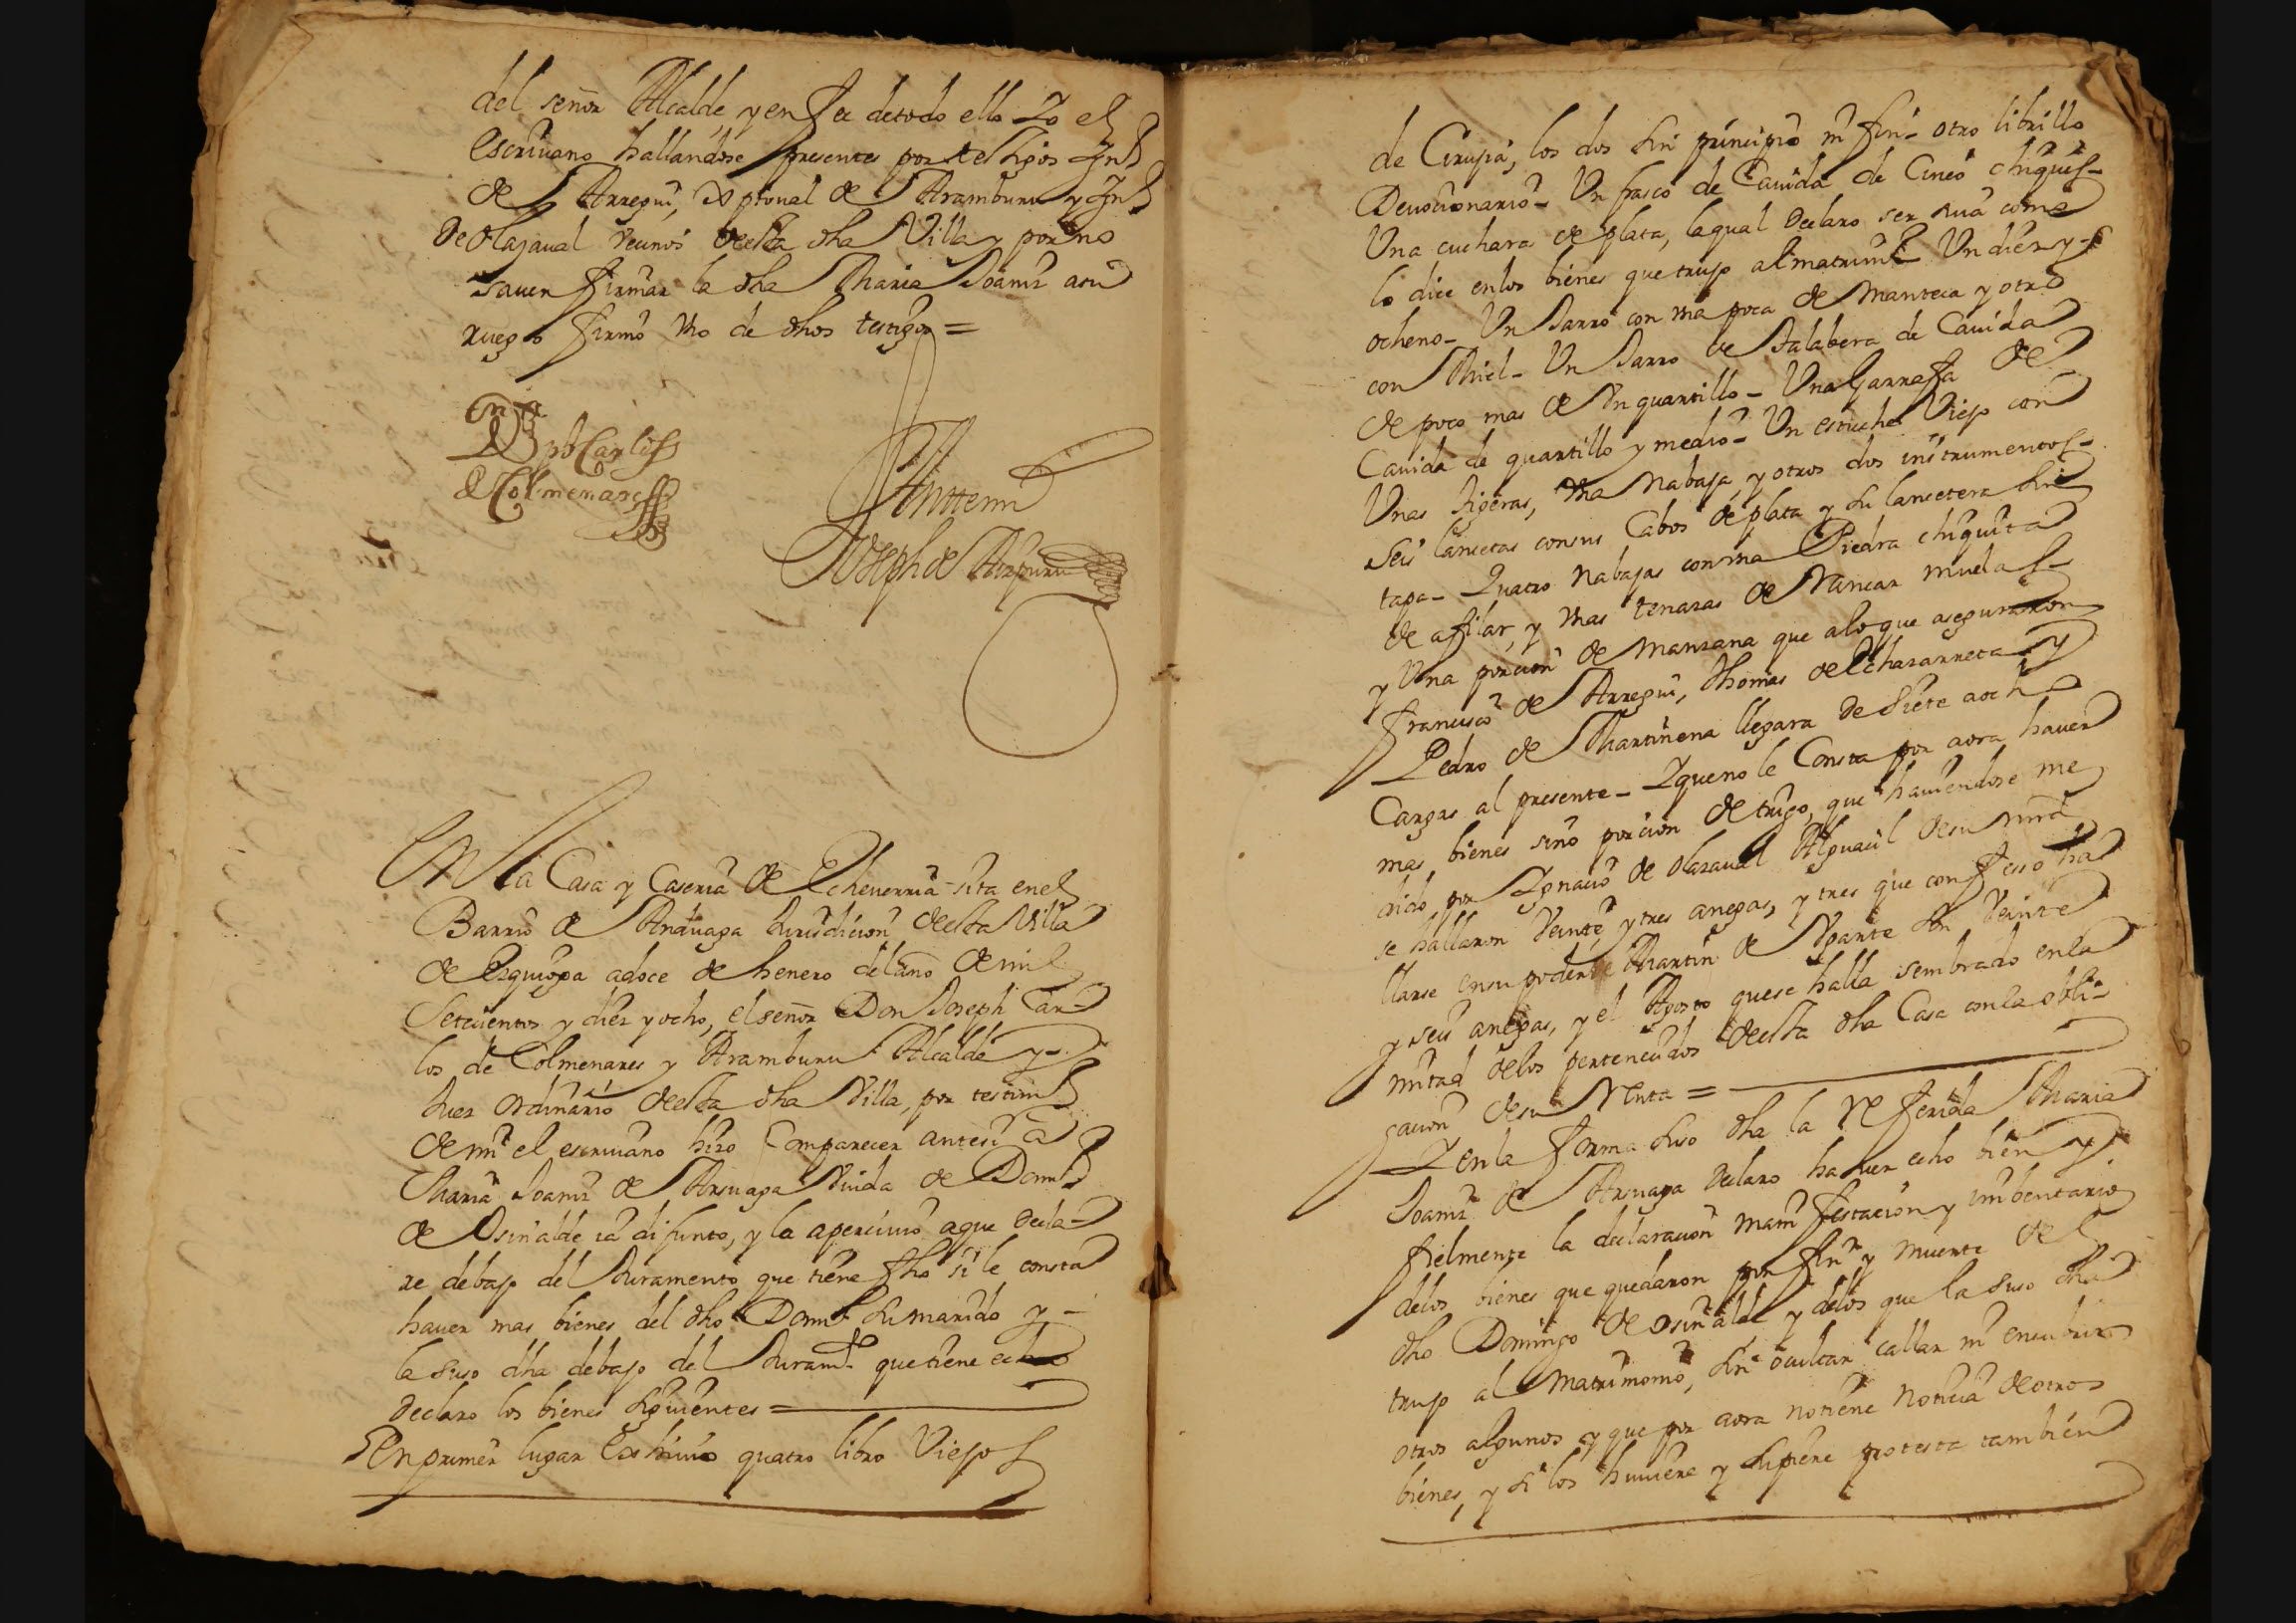 del señor Alcalde, y en fee de todo ello Yo el
Escriuano hallandose presentes por testigos Ygn.º
de Arregui, Xptoual de Aramburu y Ygn.º
de Olazaual vecinos de esta dha Villa y por no
sauer firmar la dha Maria Joanez a su
ruego firmo vno de dhos testigos =
Dn Jph Carlos
de Colmenares
Antemi
Joseph de Aizpuru
En la Casa y Caseria de Echeuerria sita en el
Barrio de Anduaga Jurisdicion de esta Villa
de Ezquioga a doce de henero del año de mil
Setecientos y diez y ocho, el señor Don Joseph Car
los de Colmenares y Aramburu Alcalde y
Juez ordinario de esta dha Villa, por testim.º
de mi el escriuano hizo Comparecer ante si a
Maria Joanez de Arsuaga Viuda de Dom.º
de Osinalde ia difunto, y la aperciuio a que decla
re debajo del Juramento que tiene fho si le consta
hauer mas bienes del dho Dom.º su marido y
la suso dha debajo del Juramto que tiene echo
declaro los bienes siguientes =
En primer lugar Exhiuio quatro libro Viejos
de Cirujia, los dos sin principio ni fin - otro librillo
Deuocionario - Un frasco de Cauida de Cinco chiques -
Una cuchara de plata, la qual declaro ser sua como
lo dice en los bienes que trujo al matrim.º Un diez y
ocheno - Un Jarro con vna poca de Manteca y otro
con Miel - Un Jarro de Talabera de Cauida
de poco mas de Vn quartillo - Una Garrafa de
Cauida de quartillo y medio - Un estuche Viejo con
Unas tigeras, vna Nabaja, y otros dos instrumentos -
Seis lancetas con sus Cabos de plata y su lancetera sin
tapa - Quatro nabajas con vna Piedra chiquita
de afilar, y vnas tenazas de Rancar muelas -
y Una porcion de manzana que a lo que aseguraron
francisco de Arregui, Thomas de Echazarreta y
Pedro de Martinena llegara de Siete a ocho
Cargas al presente - Y que no le Consta por aora hauer
mas bienes sino porcion de trigo, que hauiendose me
dido por Ygnacio de Olazaual Alguacil de su mrd
se hallaron Veinte y tres anegas, y tres que confesso ha
llarse en su poder Martin de Vgarte son Veinte
y seis anegas, y el Agosto que se halla sembrado en la
mitad de los pertenecidos de esta dha Casa con la obli
gacion de su Renta =
Y en la forma suso dha la Referida Maria
Joanez de Arsuaga declaro hauer echo bien y
fielmente la declaracion manifestacion y imbentario
de los bienes que quedaron por fin y muerte de
dho Domingo de Osinalde y de los que la suso dha
trujo al Matrimonio, sin ocultar callar ni encubrir
otros algunos y que por aora no tiene noticia de otros
bienes, y si los huuiere y supiere protesta tambien